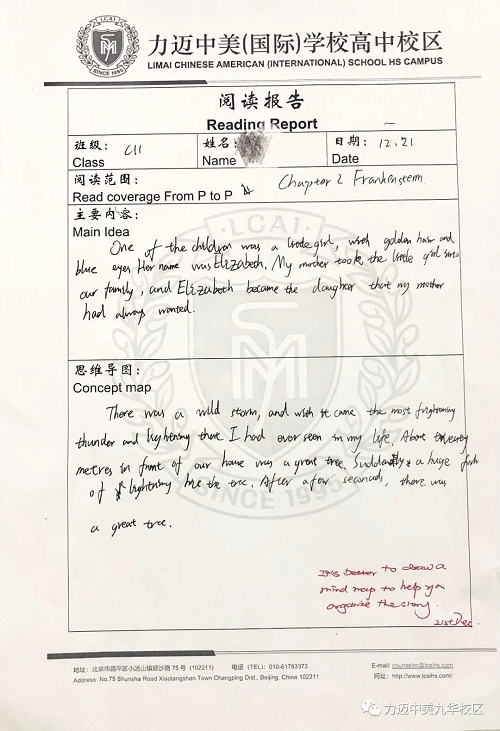 LCAI
SINCE 1993
力迈中美(国际)学校高中校区
LIMAI CHINESE AMERICAN (INTERNATIONAL) SCHOOL HS CAMPUS
阅读报告
Reading Report
班级: C11
Class
姓名:
Name
日期: 12.21
Date
阅读范围:
Read coverage From P to P Chapter 2 Frankenstein
主要内容:
Main Idea
One of the children was a little girl, with golden hair and
blue eyes. Her name was Elizabeth. My mother took the little girl into
our family, and Elizabeth became the daugher that my mother
had always wanted.
LCAI
SINCE 1993
思维导图:
Concept map
There was a wild storm, and with it came the most frightening
thunder and lightning that I had ever seen in my life. About twenty
metres in front of our house was a great tree. Suddenly a huge fork
of lightning the tree. After a few seconds, there was
a great tree.
It's better to draw a
mind map to help you
organize the story.
21st Dec.
地址: 北京市昌平区小汤山镇顺沙路 75 号 (102211) 电话 (TEL): 010-61783373 E-mail: counselor@lcaihs.com
Address: No.75 Shunsha Road Xiaotangshan Town Changping Dist., Beijing, China 102211 网址: http://www.lcaihs.com/
力迈中美九华校区